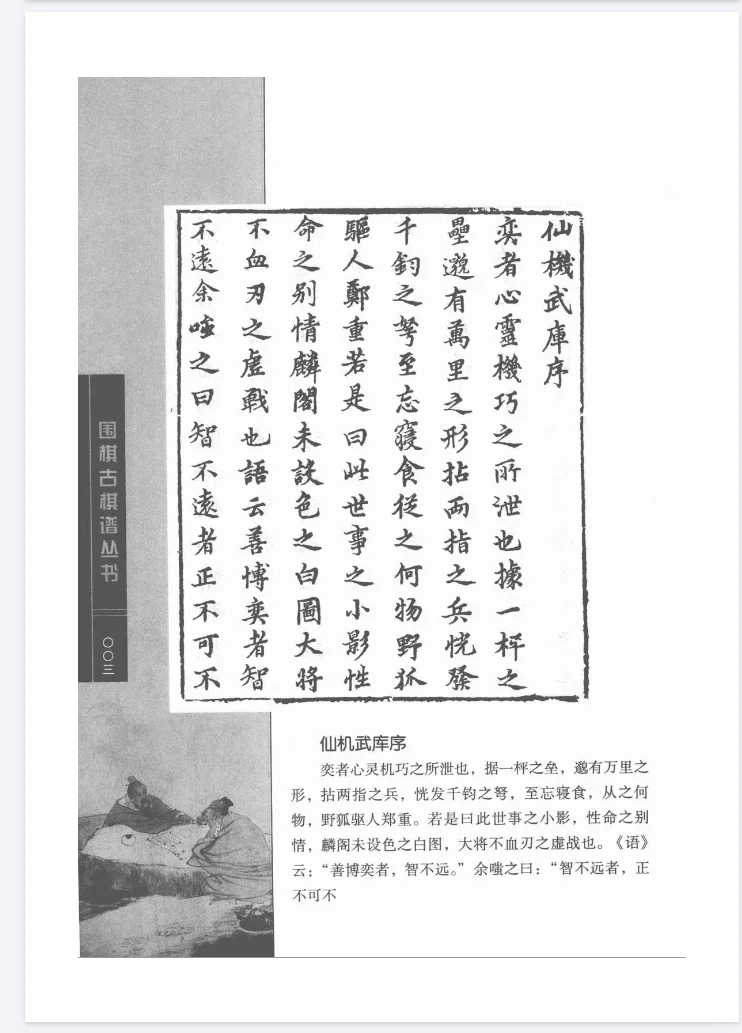 仙機武庫序
奕者心靈機巧之所泄也據一枰之
壘邈有萬里之形拈兩指之兵恍發
千鈞之弩至忘寢食從之何物野狐
驅人鄭重若是曰此世事之小影性
命之別情麟閣未設色之白圖大將
不血刃之虛戰也語云善博奕者智
不遠余嗤之曰智不遠者正不可不
围棋古棋谱丛书
〇〇三
仙机武库序
奕者心灵机巧之所泄也，据一枰之垒，邈有万里之
形，拈两指之兵，恍发千钧之弩，至忘寝食，从之何
物，野狐驱人郑重。若是曰此世事之小影，性命之别
情，麟阁未设色之白图，大将不血刃之虚战也。《语》
云：“善博奕者，智不远。”余嗤之曰：“智不远者，正
不可不